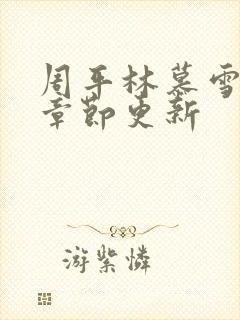 周平林慕雪
章节更新
游紫怜